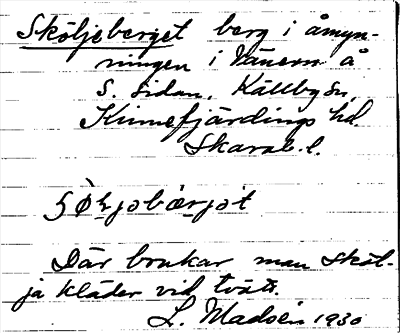 Sköljeberget berg i åmyn-
ningen i Vänern å
S. sidan, Källby sn,
Kinnefjärdings hd.
Skarab. l.
Där brukar man sköl-
ja kläder vid tvätt.
L. Madsén 1930